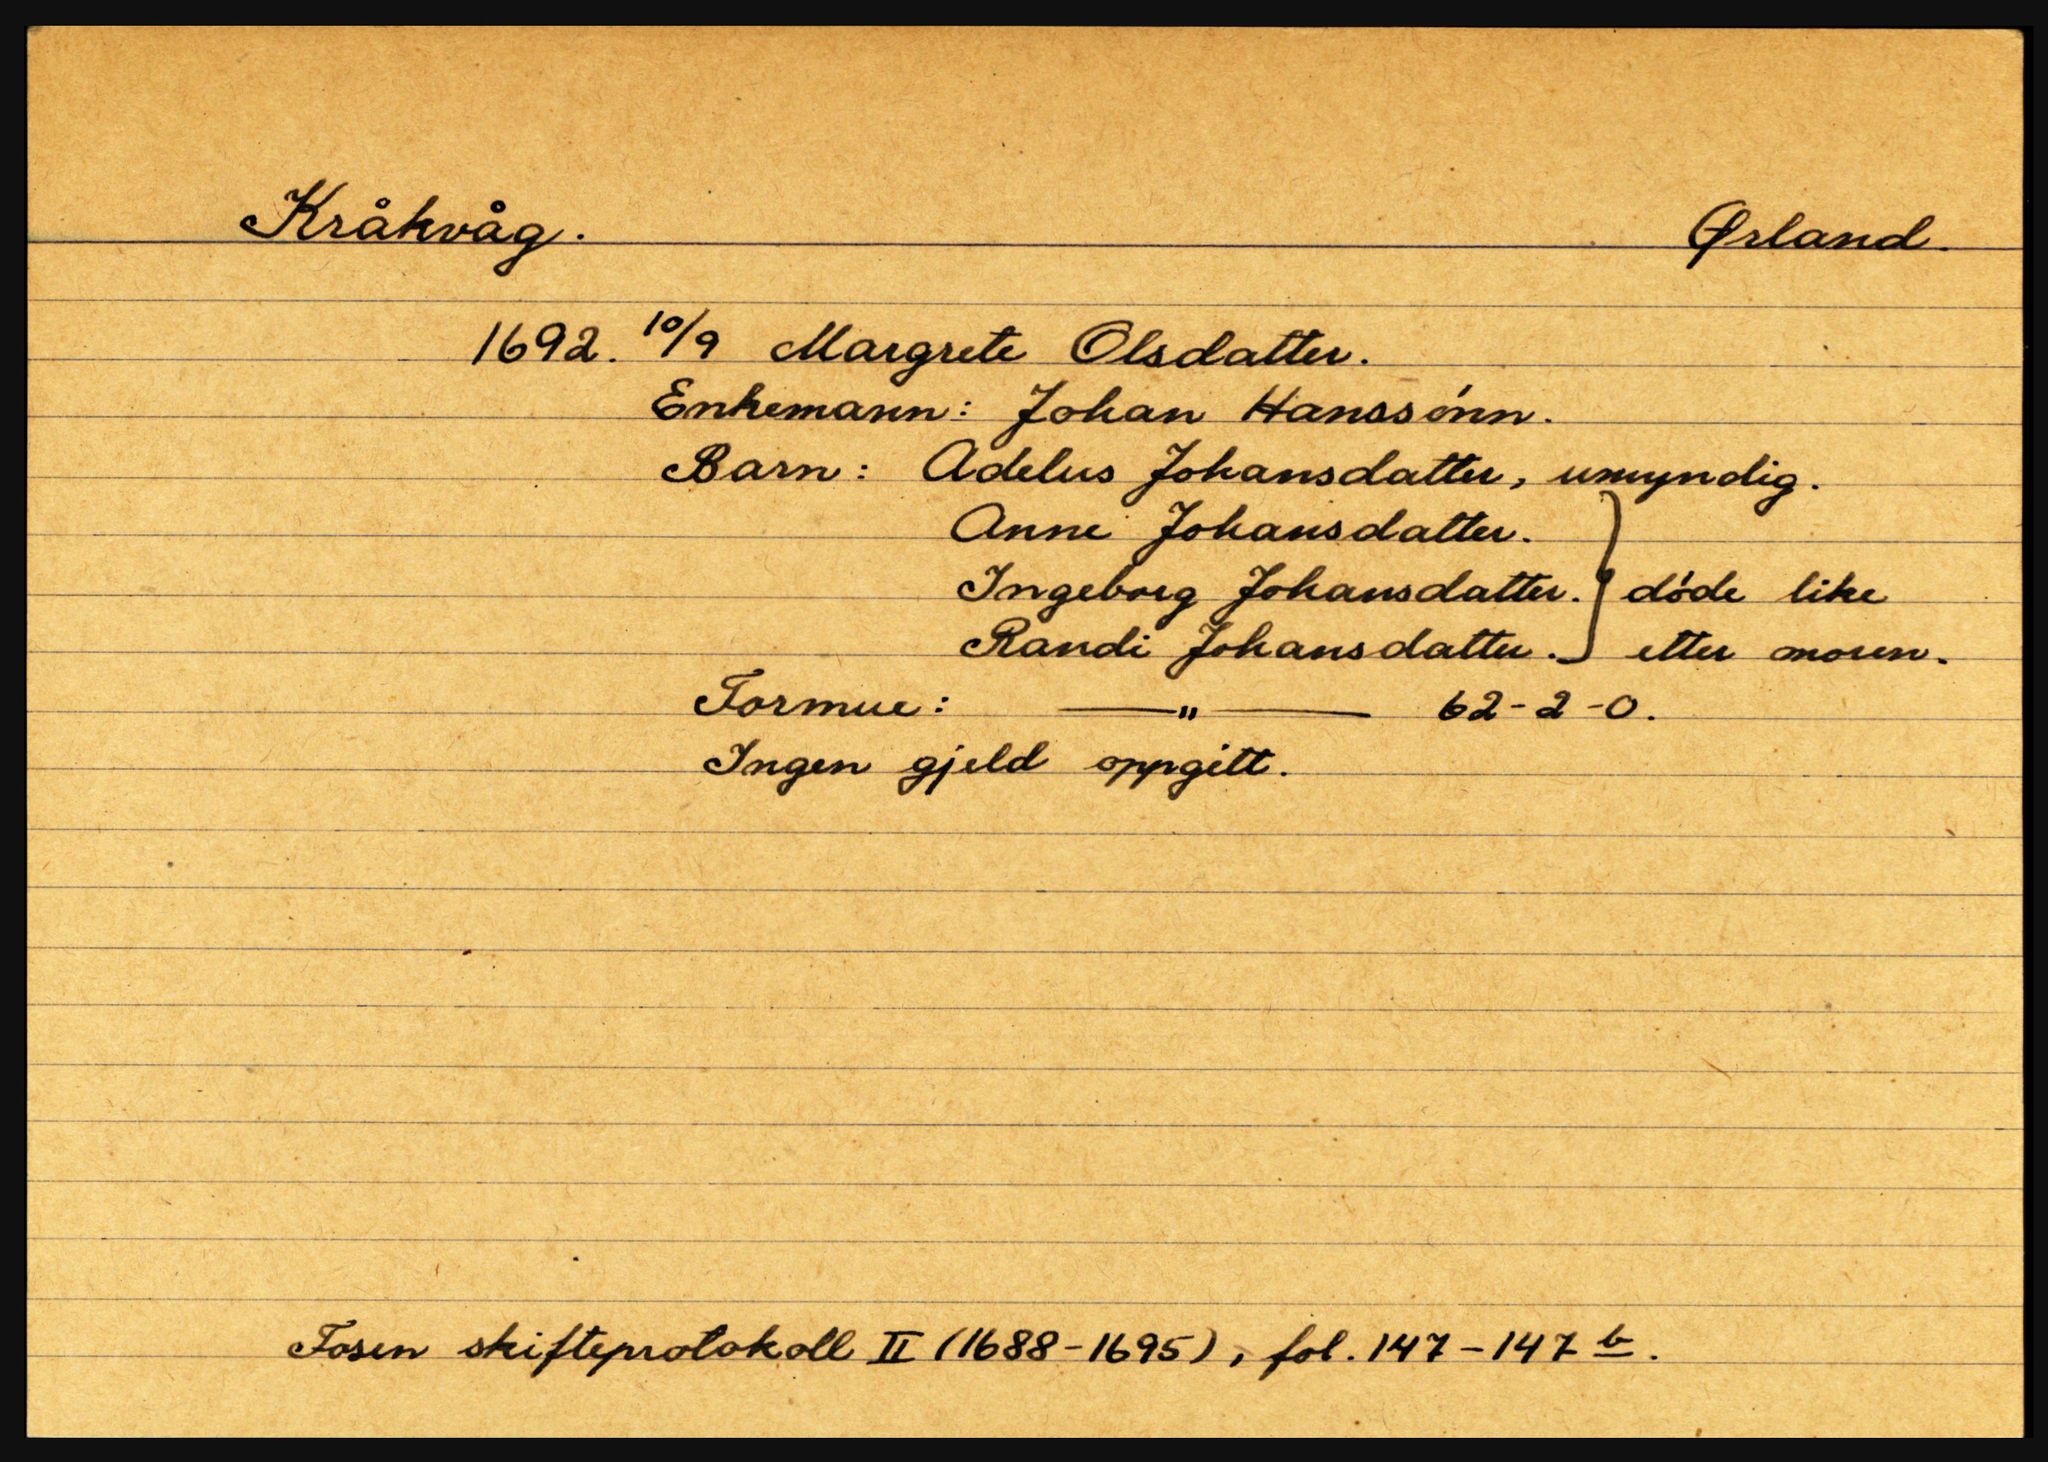 Kråkvåg. Ørland.
1692. 10/9 Margrete Olsdatter.
Enkemann: Johan Hanssønn.
Barn: Adelus Johansdatter, umyndig.
Anne Johansdatter.
Ingeborg Johansdatter. } døde like
Randi Johansdatter. etter moren.
Formue: —„— 62-2-0.
Ingen gjeld oppgitt.
Fosen skifteprotokoll II (1688-1695), fol. 147-147 b.